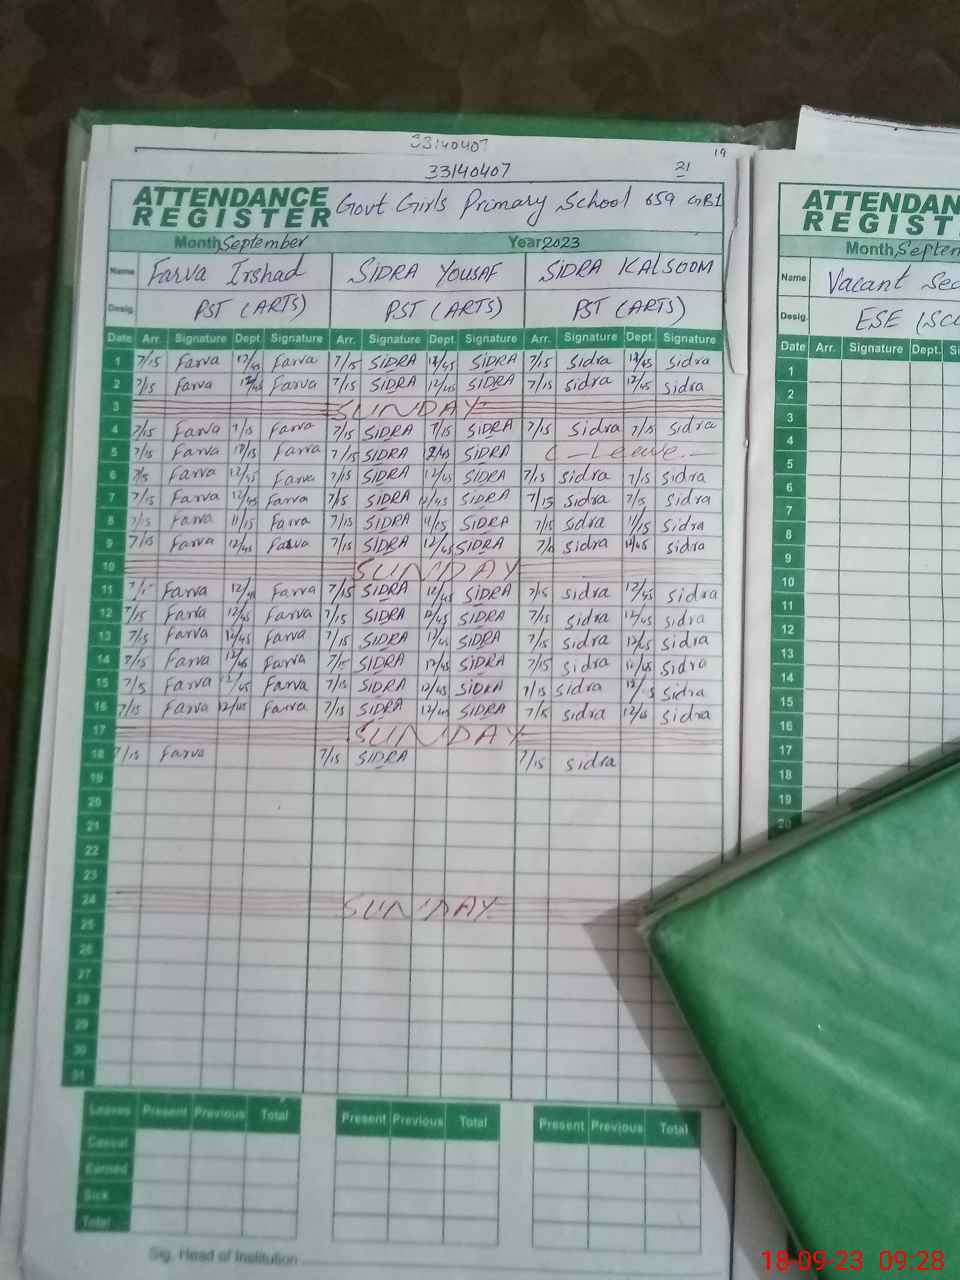 33140407
19
33140407 21
ATTENDANCE REGISTER Govt Girls Primary School 659 GB1
Month September Year 2023
Name Farva Irshad SIDRA YOUSAF SIDRA KALSOOM
Desig. PST (ARTS) PST (ARTS) PST (ARTS)
Date Arr. Signature Dept. Signature Arr. Signature Dept. Signature Arr. Signature Dept. Signature
1 7/15 Farva 12/45 Farva 7/15 SIDRA 12/45 SIDRA 7/15 Sidra 12/45 Sidra
2 7/15 Farva 12/45 Farva 7/15 SIDRA 12/45 SIDRA 7/15 Sidra 12/45 Sidra
3 SUNDAY
4 7/15 Farva 7/15 Farva 7/15 SIDRA 7/15 SIDRA 7/15 Sidra 7/15 Sidra
5 7/15 Farva Farva 7/15 SIDRA SIDRA C-Leave
6 Farva 12/45 Farva 7/15 SIDRA 12/45 SIDRA 7/15 Sidra 7/15 Sidra
7 7/15 Farva 12/45 Farva 7/15 SIDRA 12/45 SIDRA 7/15 Sidra 7/15 Sidra
8 7/15 Farva 11/15 Farva 7/15 SIDRA 11/15 SIDRA 7/15 Sidra 11/15 Sidra
9 7/15 Farva 12/45 Farva 7/15 SIDRA 12/45 SIDRA Sidra 12/45 Sidra
10 SUNDAY
11 Farva Farva 7/15 SIDRA 12/45 SIDRA 7/15 Sidra 12/45 Sidra
12 7/15 Farva 12/45 Farva 7/15 SIDRA 12/45 SIDRA 7/15 Sidra 12/45 Sidra
13 7/15 Farva 12/45 Farva 7/15 SIDRA SIDRA 7/15 Sidra 12/45 Sidra
14 7/15 Farva 12/45 Farva SIDRA 12/45 SIDRA 7/15 Sidra 12/45 Sidra
15 7/15 Farva 12/45 Farva 7/15 SIDRA 12/45 SIDRA 7/15 Sidra Sidra
16 7/15 Farva 12/45 Farva 7/15 SIDRA 12/45 SIDRA 7/15 Sidra 12/45 Sidra
17 SUNDAY
18 7/15 Farva 7/15 SIDRA 7/15 Sidra
19
20
21
22
23
24 SUNDAY
25
26
27
28
29
30
31
Leaves Present Previous Total Present Previous Total Present Previous Total
Casual
Earned
Sick
Total
Sig. Head of Institution
ATTENDAN
REGIST
Month Septem
Name Vacant
Desig. ESE
Date Arr. Signature Dept.
1
2
3
4
5
6
7
8
9
10
11
12
13
14
15
16
17
18
19
20
18-09-23 09:28